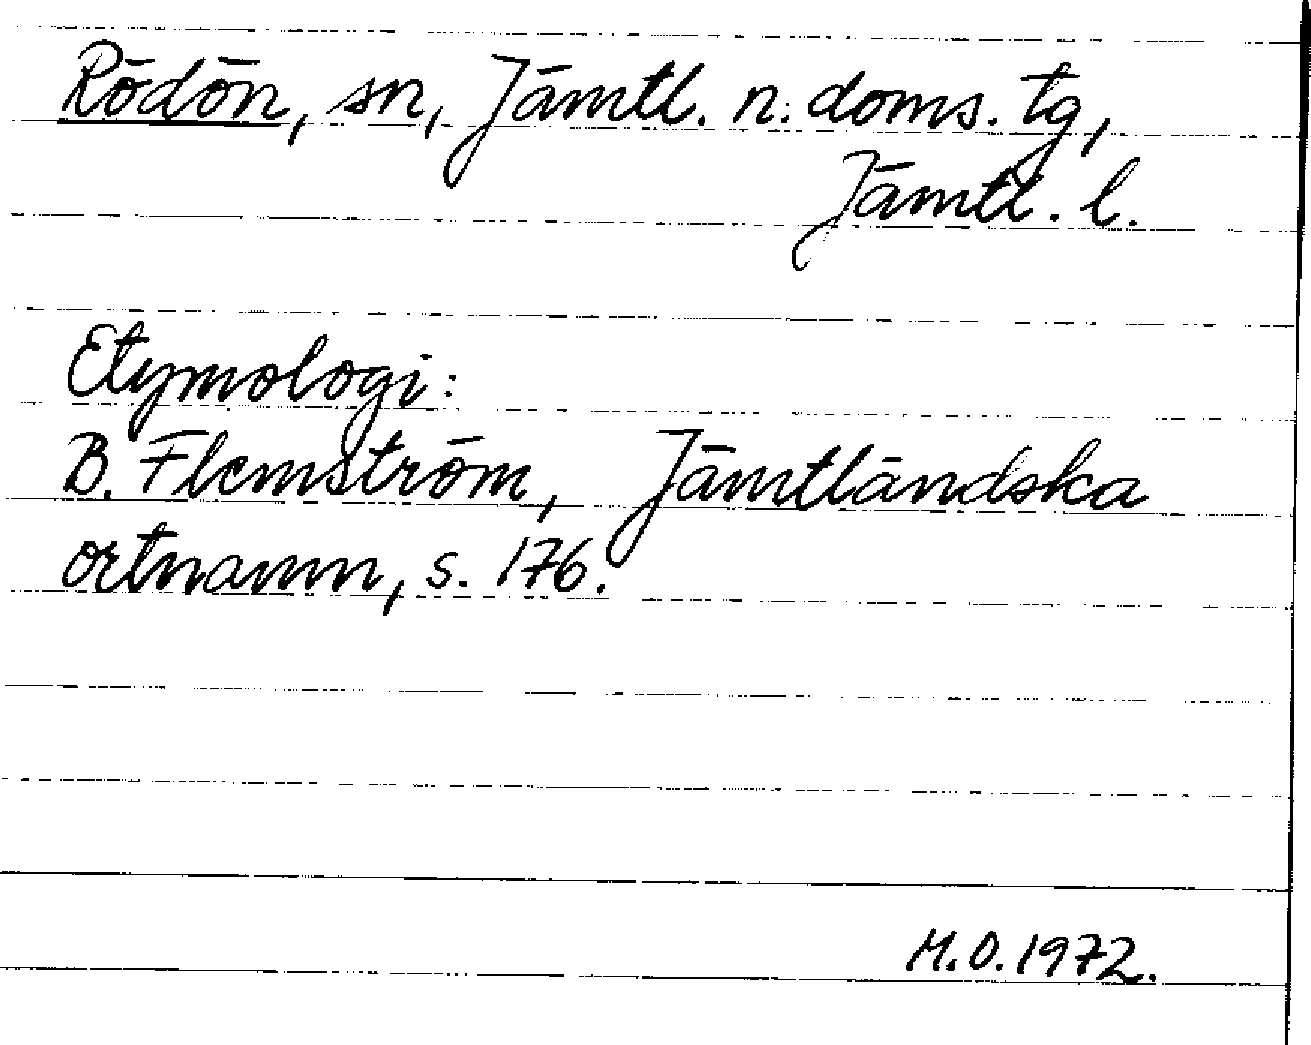 Rödön, sn, Jämtl. n. doms. tg,
Jämtl. l.
Etymologi:
B. Flemström, Jämtländska
ortnamn, s. 176.
M.O. 1972.